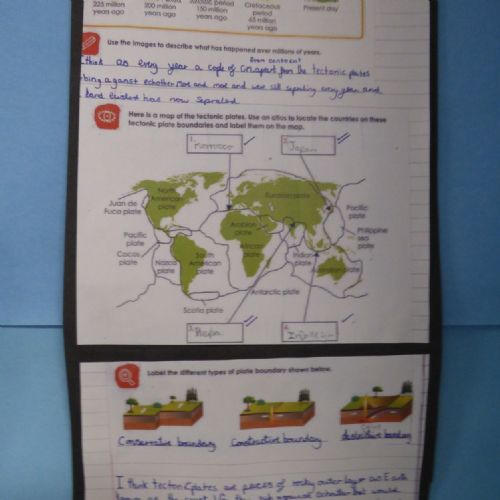 225 million years ago
200 million years ago
Jurassic period 150 million years ago
Cretaceous period 65 million years ago
Present day
Use the images to describe what has happened over millions of years.
think as every year a couple of cm apart from the tectonic plates
bing against echother and and we still seperating every year and
land has now seperated
Here is a map of the tectonic plates. Use an atlas to locate the countries on these
tectonic plate boundaries and label them on the map.
1. Morroco
2. Japan
North American plate
Eurasian plate
Juan de Fuca plate
Pacific plate
Arabian plate
Philippine sea plate
Pacific plate
Cocos plate
Nazca plate
South American plate
African plate
Indian plate
Australian plate
Antarctic plate
Scotia plate
3.
4.
Label the different types of plate boundary shown below.
Conservative boundary
Constructive boundary
destructive boundary
I think tectonic plates are pieces of rocky outer layer as Earth